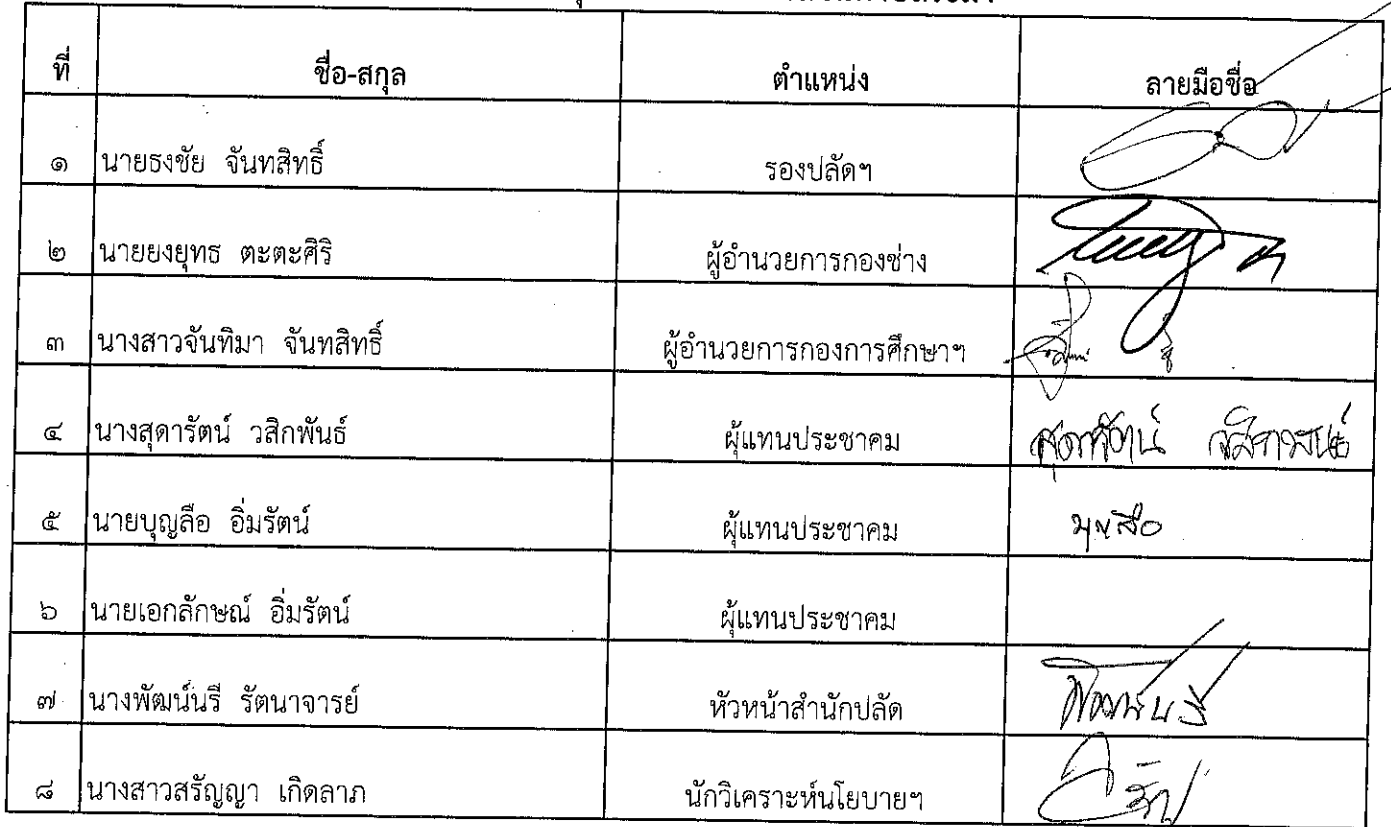 ที่ ชื่อ-สกุล ตำแหน่ง ลายมือชื่อ
๑ นายธงชัย จันทสิทธิ์ รองปลัดฯ
๒ นายยงยุทธ ตะตะศิริ ผู้อำนวยการกองช่าง
๓ นางสาวจันทิมา จันทสิทธิ์ ผู้อำนวยการกองการศึกษาฯ
๔ นางสุดารัตน์ วสิกพันธ์ ผู้แทนประชาคม สุดารัตน์ วสิกพันธ์
๕ นายบุญลือ อิ่มรัตน์ ผู้แทนประชาคม บุญลือ
๖ นายเอกลักษณ์ อิ่มรัตน์ ผู้แทนประชาคม
๗ นางพัฒน์นรี รัตนาจารย์ หัวหน้าสำนักปลัด
๘ นางสาวสรัญญา เกิดลาภ นักวิเคราะห์นโยบายฯ